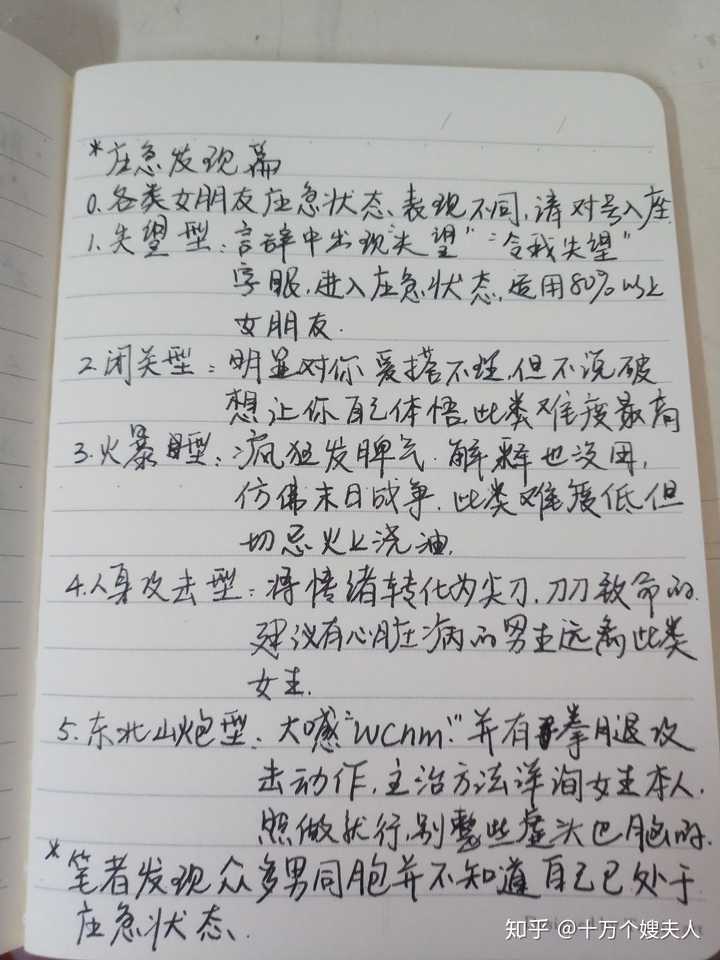 *应急发现篇
0.各类女朋友应急状态、表现不同,请对号入座
1.失望型:言辞中出现"失望""令我失望"
字眼,进入应急状态,适用80%以上
女朋友.
2.闭关型:明显对你爱搭不理,但不说破
想让你自己体悟,此类难度最高
3.火暴型:疯狂发脾气.解释也没用,
仿佛末日战争.此类难度低但
切忌火上浇油.
4.人身攻击型:将情绪转化为尖刀,刀刀致命的.
建议有心脏病的男主远离此类
女主.
5.东北山炮型:大喊"wcnm!"并有拳腿攻
击动作,主治方法详询女主本人.
照做就行,别整些虚头巴脑的.
*笔者发现众多男同胞并不知道自己已处于
应急状态、
知乎 @十万个嫂夫人